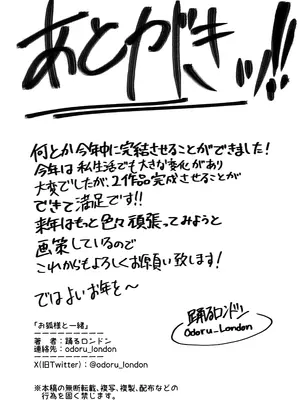 あとがきッ!!
何とか今年中に完結させることができました!
今年は私生活でも大きな変化があり
大変でしたが、2作品完成させることが
できて満足です!!
来年はもっと色々頑張ってみようと
画策しているので
これからもよろしくお願い致します!
ではよいお年を〜
踊るロンドン
Odoru_London
『お狐様と一緒』
ーーーーーーーーー
著 者:踊るロンドン
連絡先:odoru_london
ーーーーーーーーー
X(旧Twitter):@odoru_london
※本稿の無断転載、複写、複製、配布などの
行為を固く禁じます。